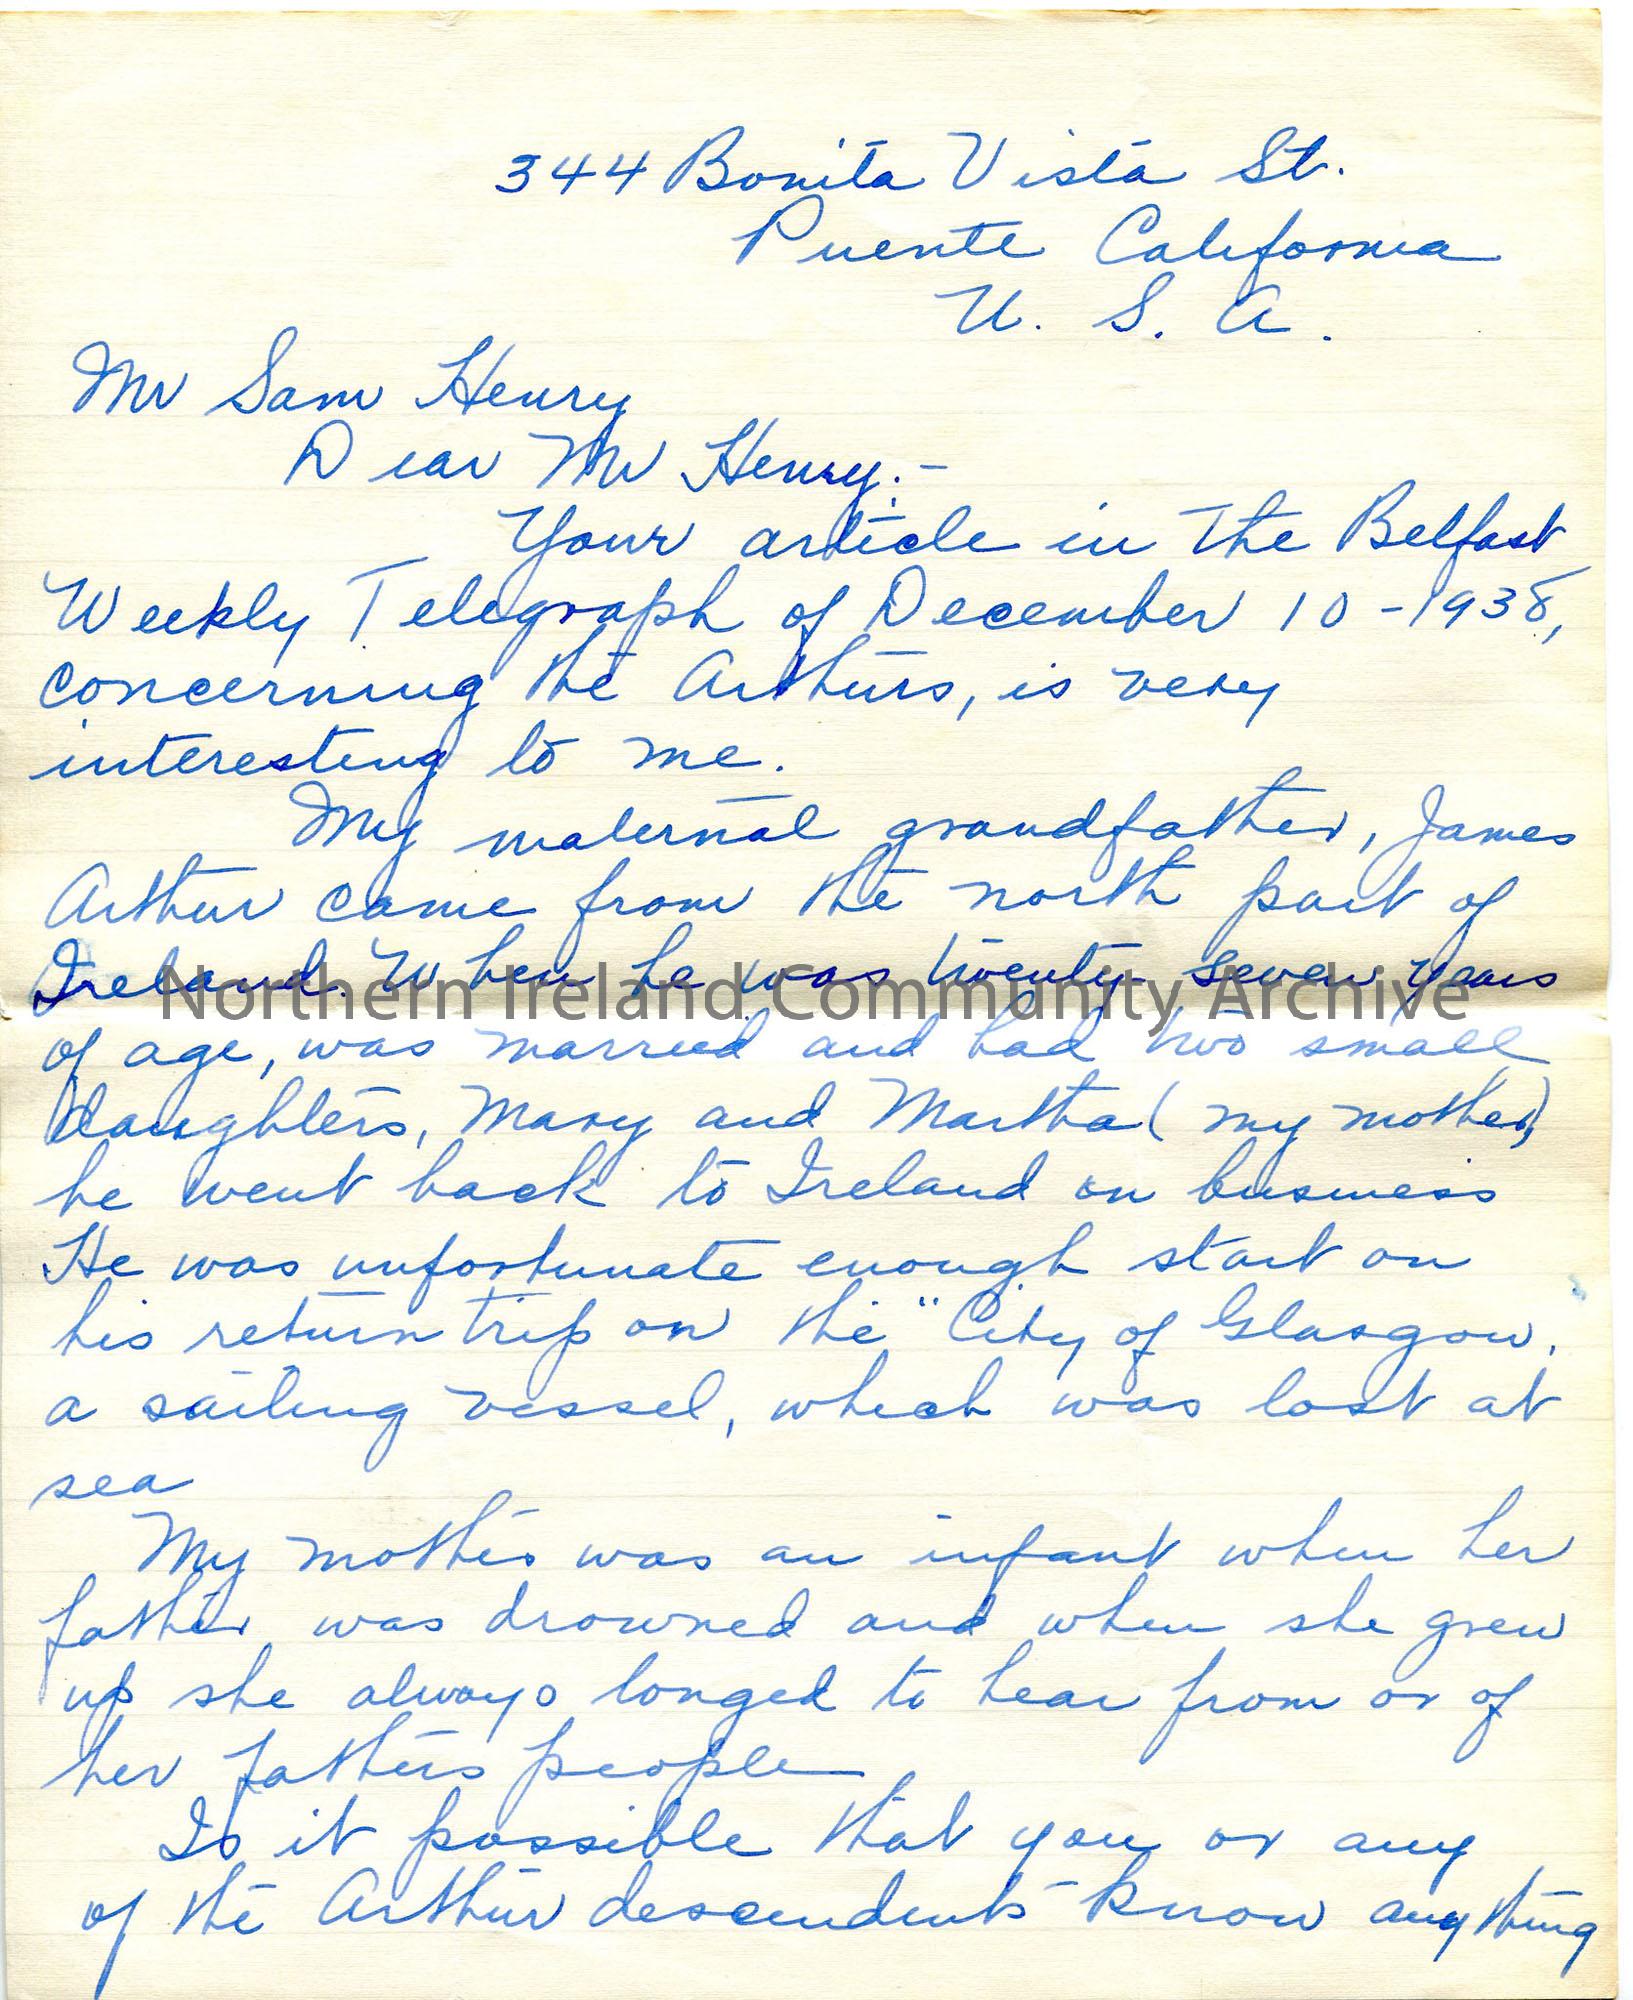 344 Bonita Vista St.
Puente California
U. S. A.
Mr Sam Henry
Dear Mr Henry:-
Your article in The Belfast
Weekly Telegraph of December 10-1938,
concerning the Arthurs, is very
interesting to me.
My maternal grandfather, James
Arthur came from the north part of
Ireland. When he was twenty-seven years
Northern Ireland Community Archive
of age, was married and had two small
daughters, Mary and Martha (my mother)
he went back to Ireland on business
He was unfortunate enough start on
his return trip on the "City of Glasgow,
a sailing vessel, which was lost at
sea
My mother was an infant when her
father was drowned and when she grew
up she always longed to hear from or of
her fathers people
Is it possible that you or any
of the Arthur descendents know anything